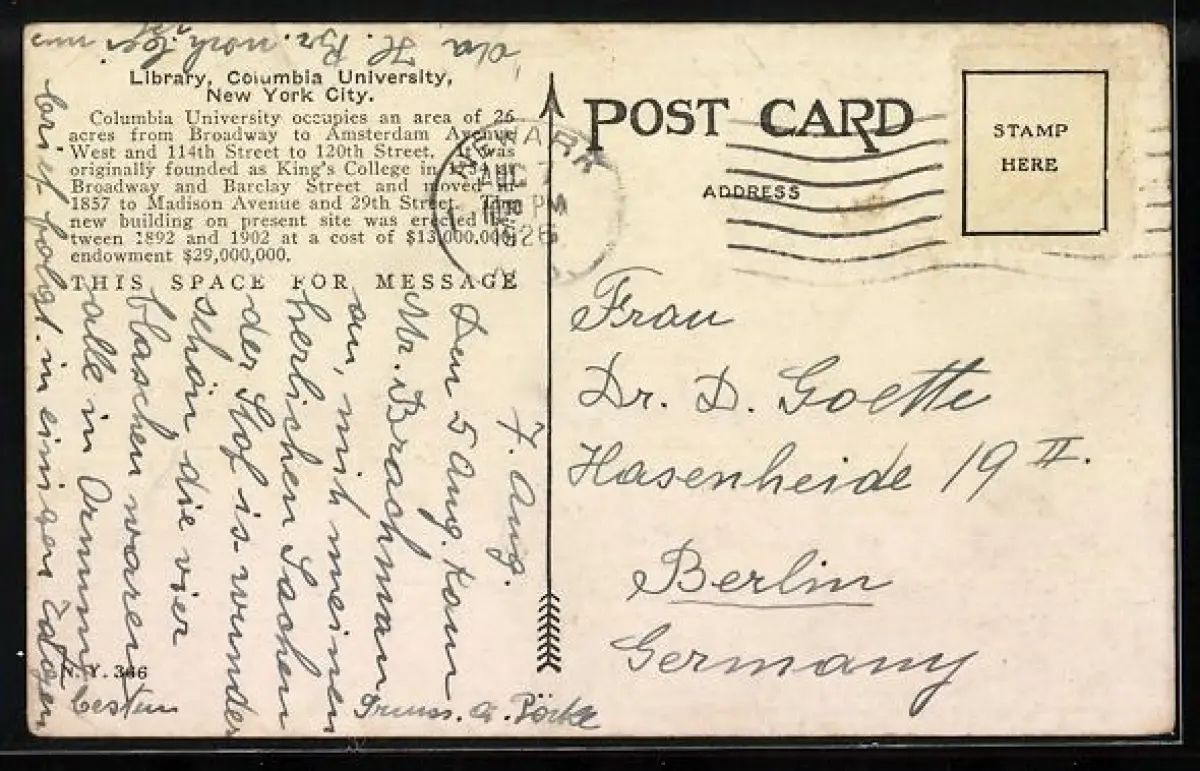 Library, Columbia University,
New York City.
Columbia University occupies an area of 26
acres from Broadway to Amsterdam Avenue
West and 114th Street to 120th Street. It was
originally founded as King's College in 1754 at
Broadway and Barclay Street and moved in
1857 to Madison Avenue and 29th Street. The
new building on present site was erected be-
tween 1892 and 1902 at a cost of $13,000,000;
endowment $29,000,000.
THIS SPACE FOR MESSAGE
7. Aug.
Den 5 Aug. kam
Mr. Brachmann
an, mit meinen
herlichen Sachen
der Stof is wunder
schön die vier
blaschen waren
alle in Ornung
brief folgt in einigen Tagen
besten
Gruss. a.
N. Y. 366
POST CARD
ADDRESS
STAMP
HERE
NEWARK
AUG 7
PM
1926
Frau
Dr. D. Goette
Hasenheide 19 II.
Berlin
Germany